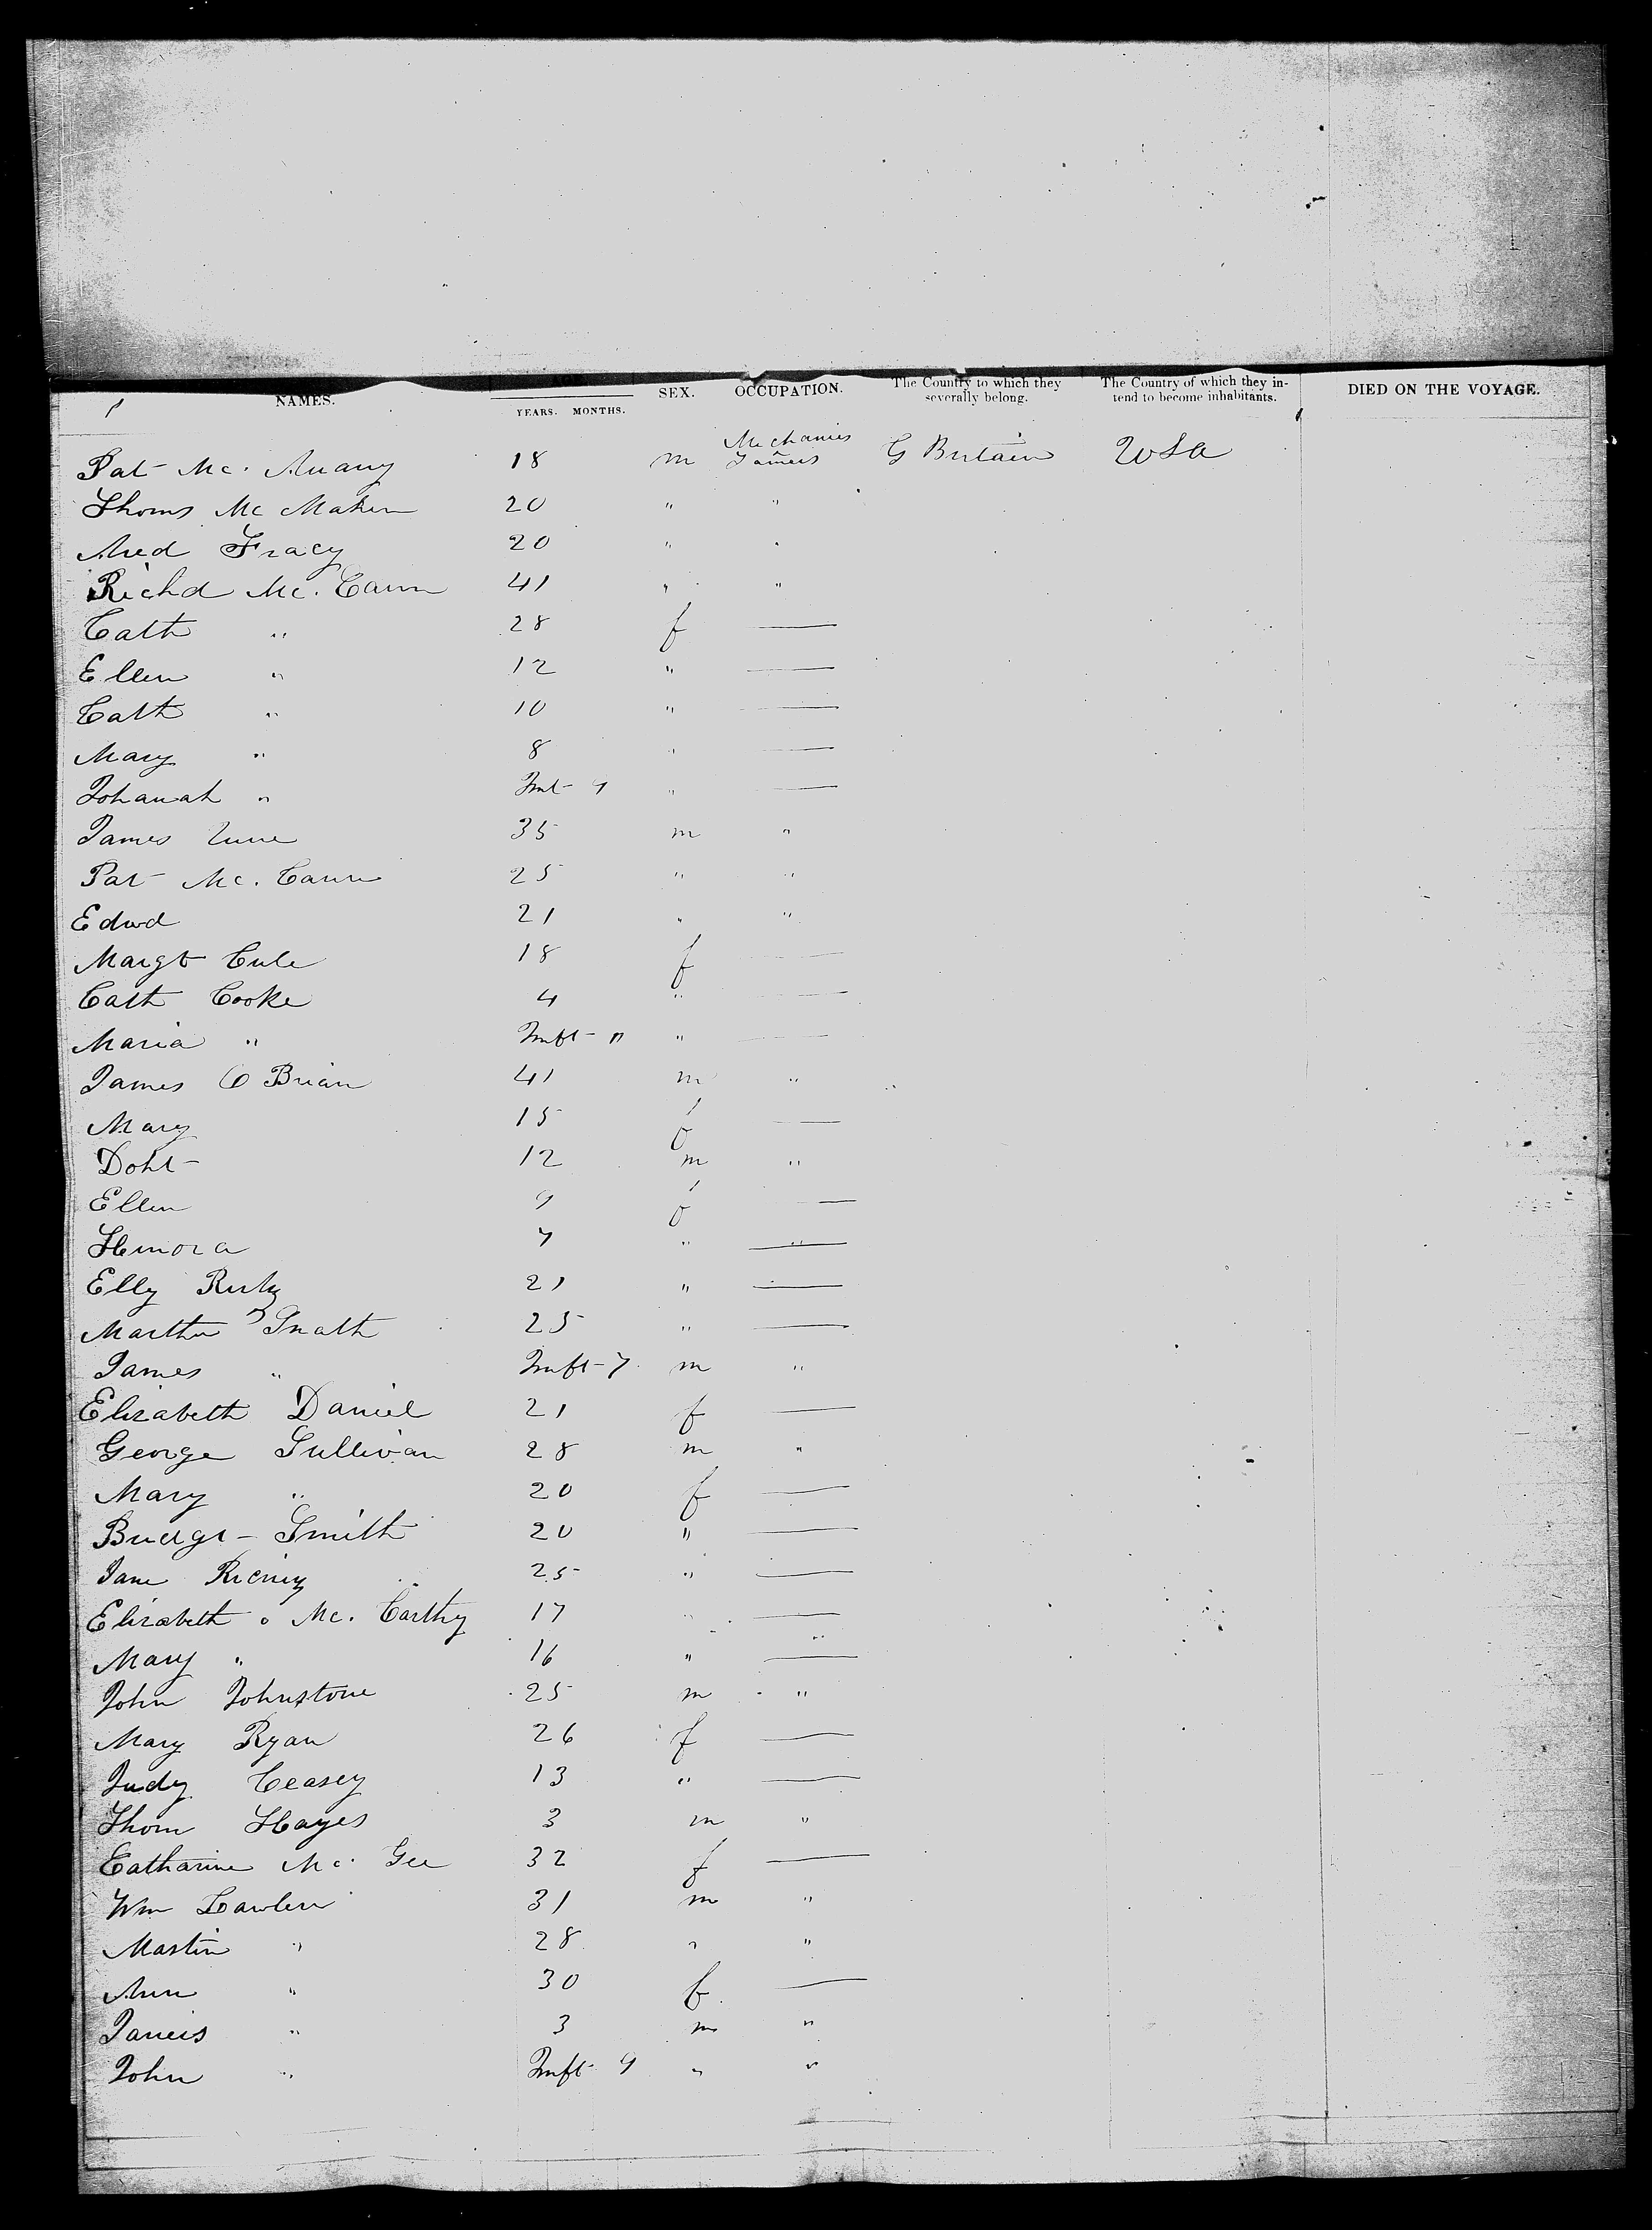 NAMES. AGE. YEARS. MONTHS. SEX. OCCUPATION. The Country to which they severally belong. The Country of which they intend to become inhabitants. DIED ON THE VOYAGE.
Mechanics
Pat Mc. 18 m G Britain USa
Thoms Mc Maken 20 " "
20 "
Richd Mc. Cann 41 " "
Cath " 28 f —
Ellen " 12 " —
Cath " 10 " —
Mary " 8 " —
Johanah " 9 " —
James 35 m "
Pat Mc. Cann 25 " "
Edwd 21 " "
Margt 18 f —
Cath Cooke 4 " —
Maria " Inft - 11 " —
James O Brian 41 m "
Mary 15 f —
12 m "
Ellen 9 f —
Henora 7 " "
Elly 21 " —
Martha 25 " —
James " Inft - 7 m "
Elizabeth Daniel 21 f —
George Sullivan 28 m "
Mary " 20 f —
Bridgt - Smith 20 " —
Jane 25 " —
Elizabeth Mc. Carthy 17 " —
Mary " 16 " —
John Johnstone 25 m "
Mary Ryan 26 f —
Judy Ceasey 13 " —
Thom Hayes 3 m "
Catharine Mc. Gee 32 f —
Wm Lawlen 31 m "
Martin " 28 " "
Ann " 30 f —
James " 3 m "
John " Inft 9 " "